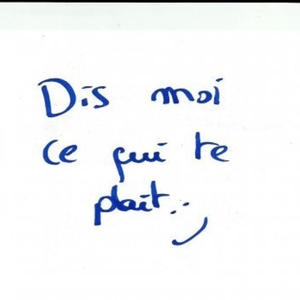 Dis moi
ce qui te
plait..